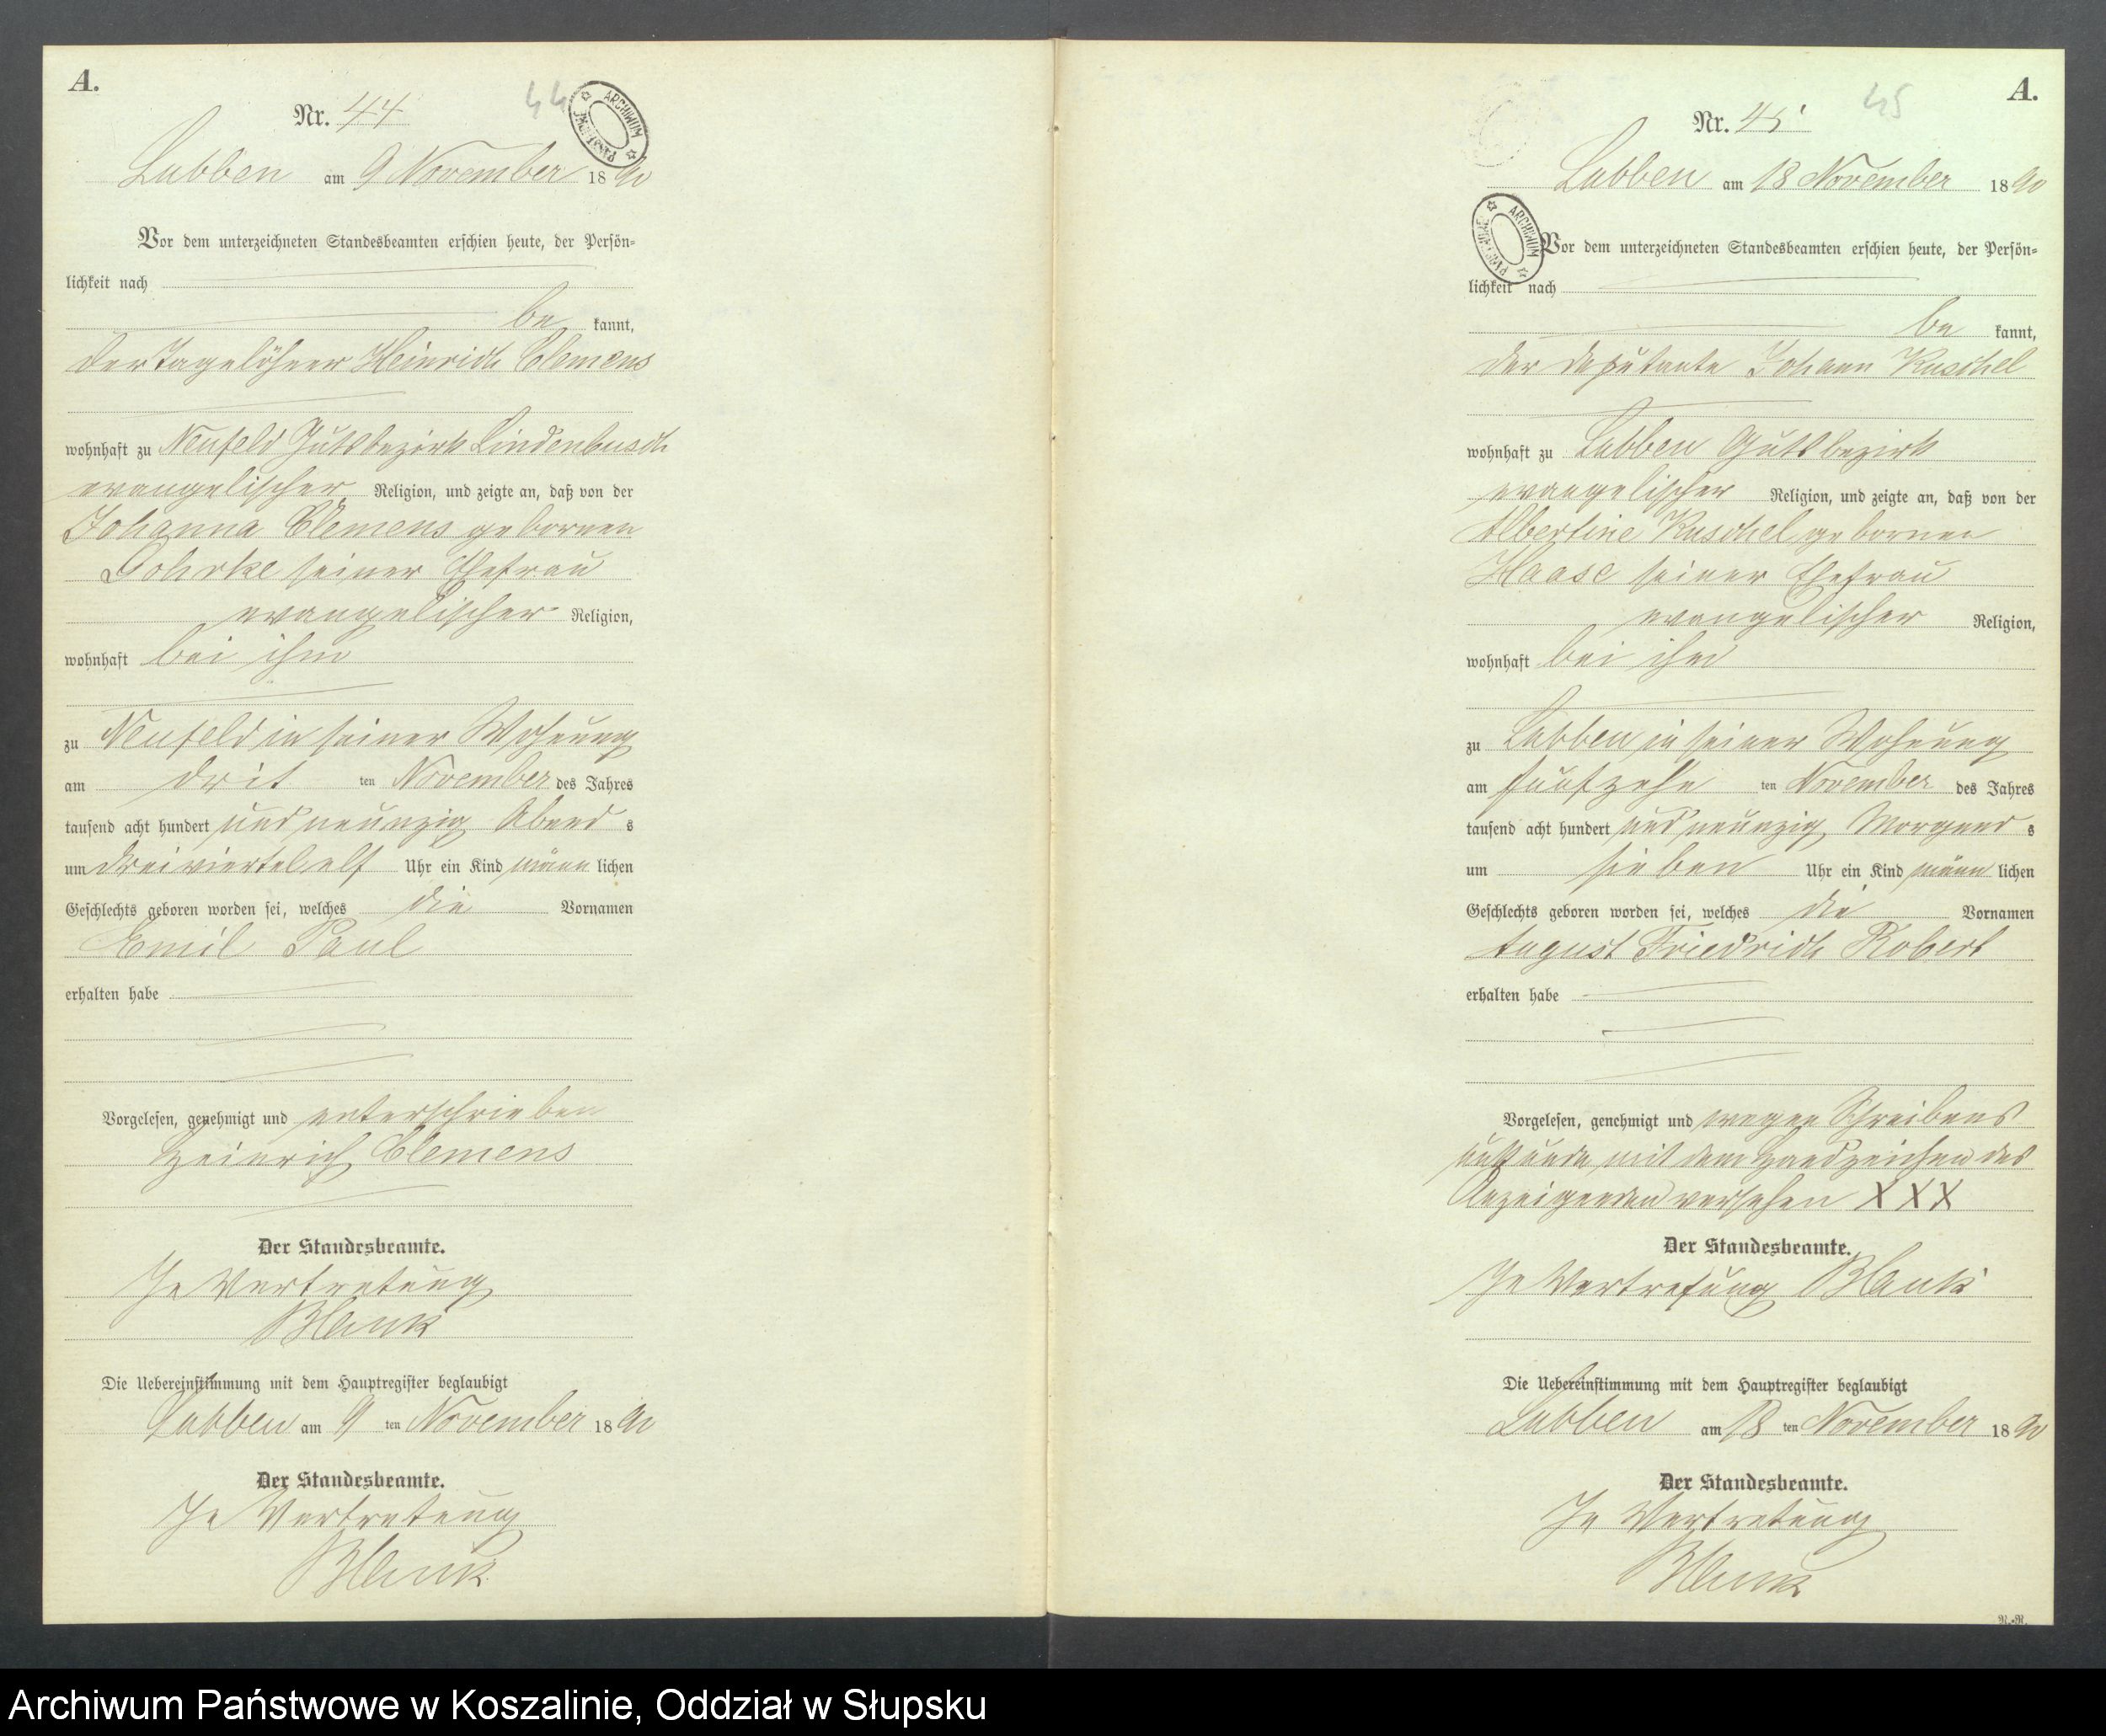 A.
Nr. 44
44
ARCHIWUM PAŃSTWOWE
Lubben am 9 November 1890
Vor dem unterzeichneten Standesbeamten erschien heute, der Persön-
lichkeit nach
be kannt,
der Tagelöhner Heinrich Clemens
wohnhaft zu Neufeld Gutsbezirk Lindenbusch
evangelischer Religion, und zeigte an, daß von der
Johanna Clemens geborenen
Gohrke seiner Ehefrau
evangelischer Religion,
wohnhaft bei ihm
zu Neufeld in seiner Wohnung
am drit ten November des Jahres
tausend acht hundert und neunzig Abend s
um dreiviertel elf Uhr ein Kind männ lichen
Geschlechts geboren worden sei, welches die Vornamen
Emil Paul
erhalten habe
Vorgelesen, genehmigt und unterschrieben
Heinrich Clemens
Der Standesbeamte.
In Vertretung
Blank
Die Uebereinstimmung mit dem Hauptregister beglaubigt
Lubben am 9 ten November 1890
Der Standesbeamte.
In Vertretung
Blank
A.
Nr. 45
45
ARCHIWUM PAŃSTWOWE
Lubben am 18 November 1890
Vor dem unterzeichneten Standesbeamten erschien heute, der Persön-
lichkeit nach
be kannt,
der Deputante Johann Kuschel
wohnhaft zu Lubben Gutsbezirk
evangelischer Religion, und zeigte an, daß von der
Albertine Kuschel geborenen
Haase seiner Ehefrau
evangelischer Religion,
wohnhaft bei ihm
zu Lubben in seiner Wohnung
am fünfzehn ten November des Jahres
tausend acht hundert und neunzig Morgend s
um sieben Uhr ein Kind männ lichen
Geschlechts geboren worden sei, welches die Vornamen
August Friedrich Robert
erhalten habe
Vorgelesen, genehmigt und wegen Schreibens
unkunde mit dem Handzeichen des
Anzeigenden versehen XXX
Der Standesbeamte.
In Vertretung Blank
Die Uebereinstimmung mit dem Hauptregister beglaubigt
Lubben am 18 ten November 1890
Der Standesbeamte.
In Vertretung
Blank
Archiwum Państwowe w Koszalinie, Oddział w Słupsku